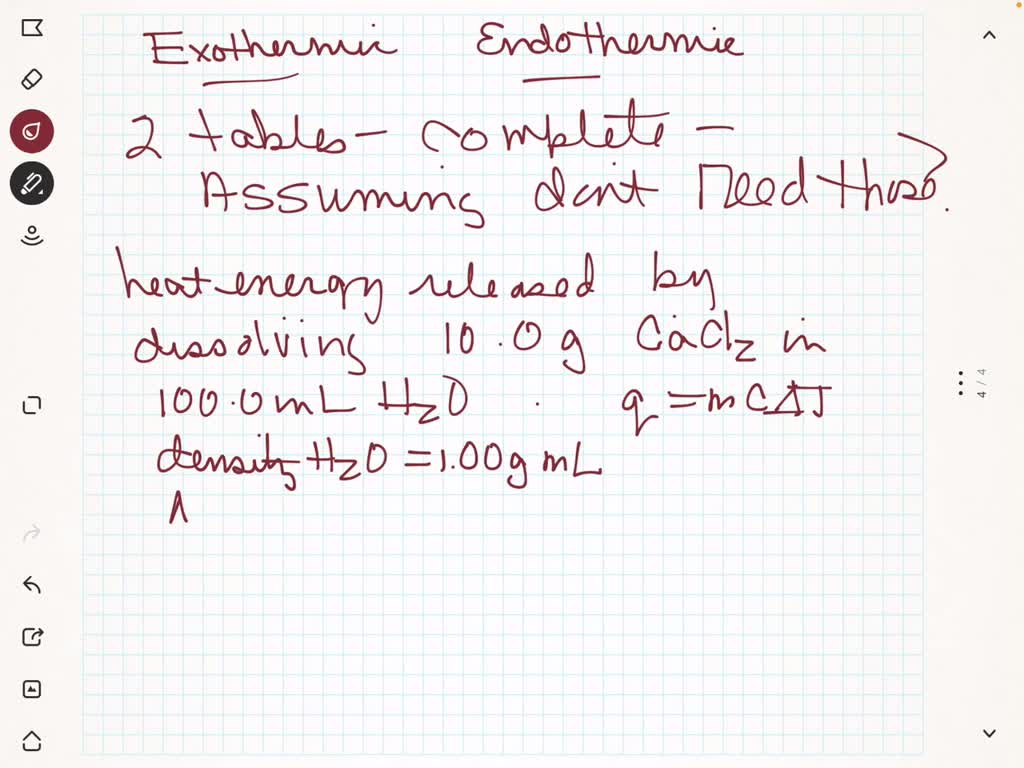 Exothermic Endothermic
2 tables - complete -
Assuming dont need those?
heat energy released by
dissolving 10.0g CaCl2 in
100.0mL H2O . q=mCΔT
density H2O = 1.00g mL
4 / 4